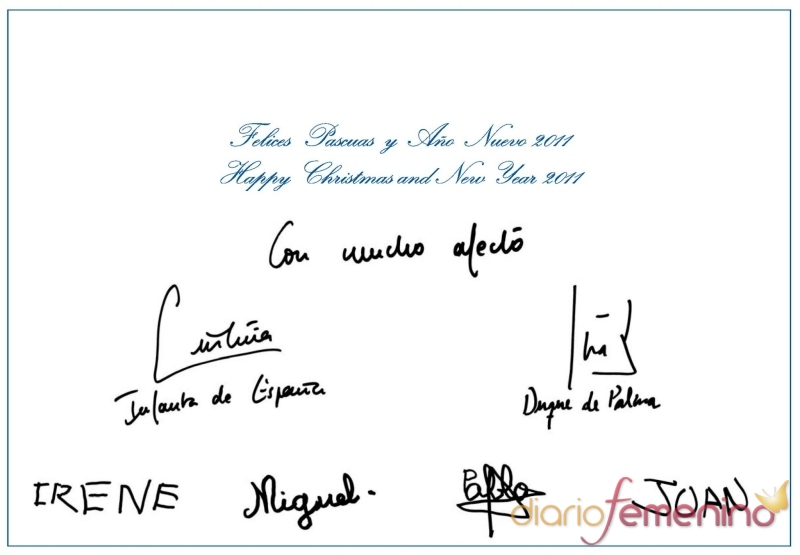 Felices Pascuas y Año Nuevo 2011
Happy Christmas and New Year 2011
Con mucho afectó
Cristina
Infanta de España
Iñaki
Duque de Palma
IRENE Miguel. Pablo JUAN
diariofemenino